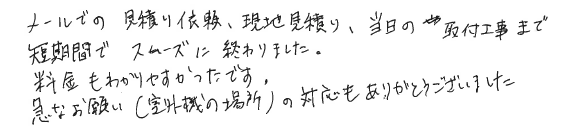 メールでの 見積り依頼、現地見積り、当日の 取付工事まで
短期間で スムーズに 終わりました。
料金もわかりやすかったです。
急なお願い(室外機の場所)の対応もありがとうございました